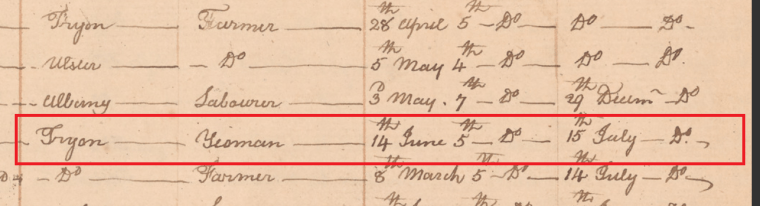 Tryon — Farmer — 28th April 5th — Do — Do — Do.
Ulster — Do — 5th May 4th — Do — Do — Do.
Albemy — Labourer — 3d May. 7th — Do — 29th Decemr — Do
Tryon — Yeoman — 14th June 5th — Do — 15th July — Do.
Do — Do — Farmer — 8th March 5th — Do — 14th July — Do